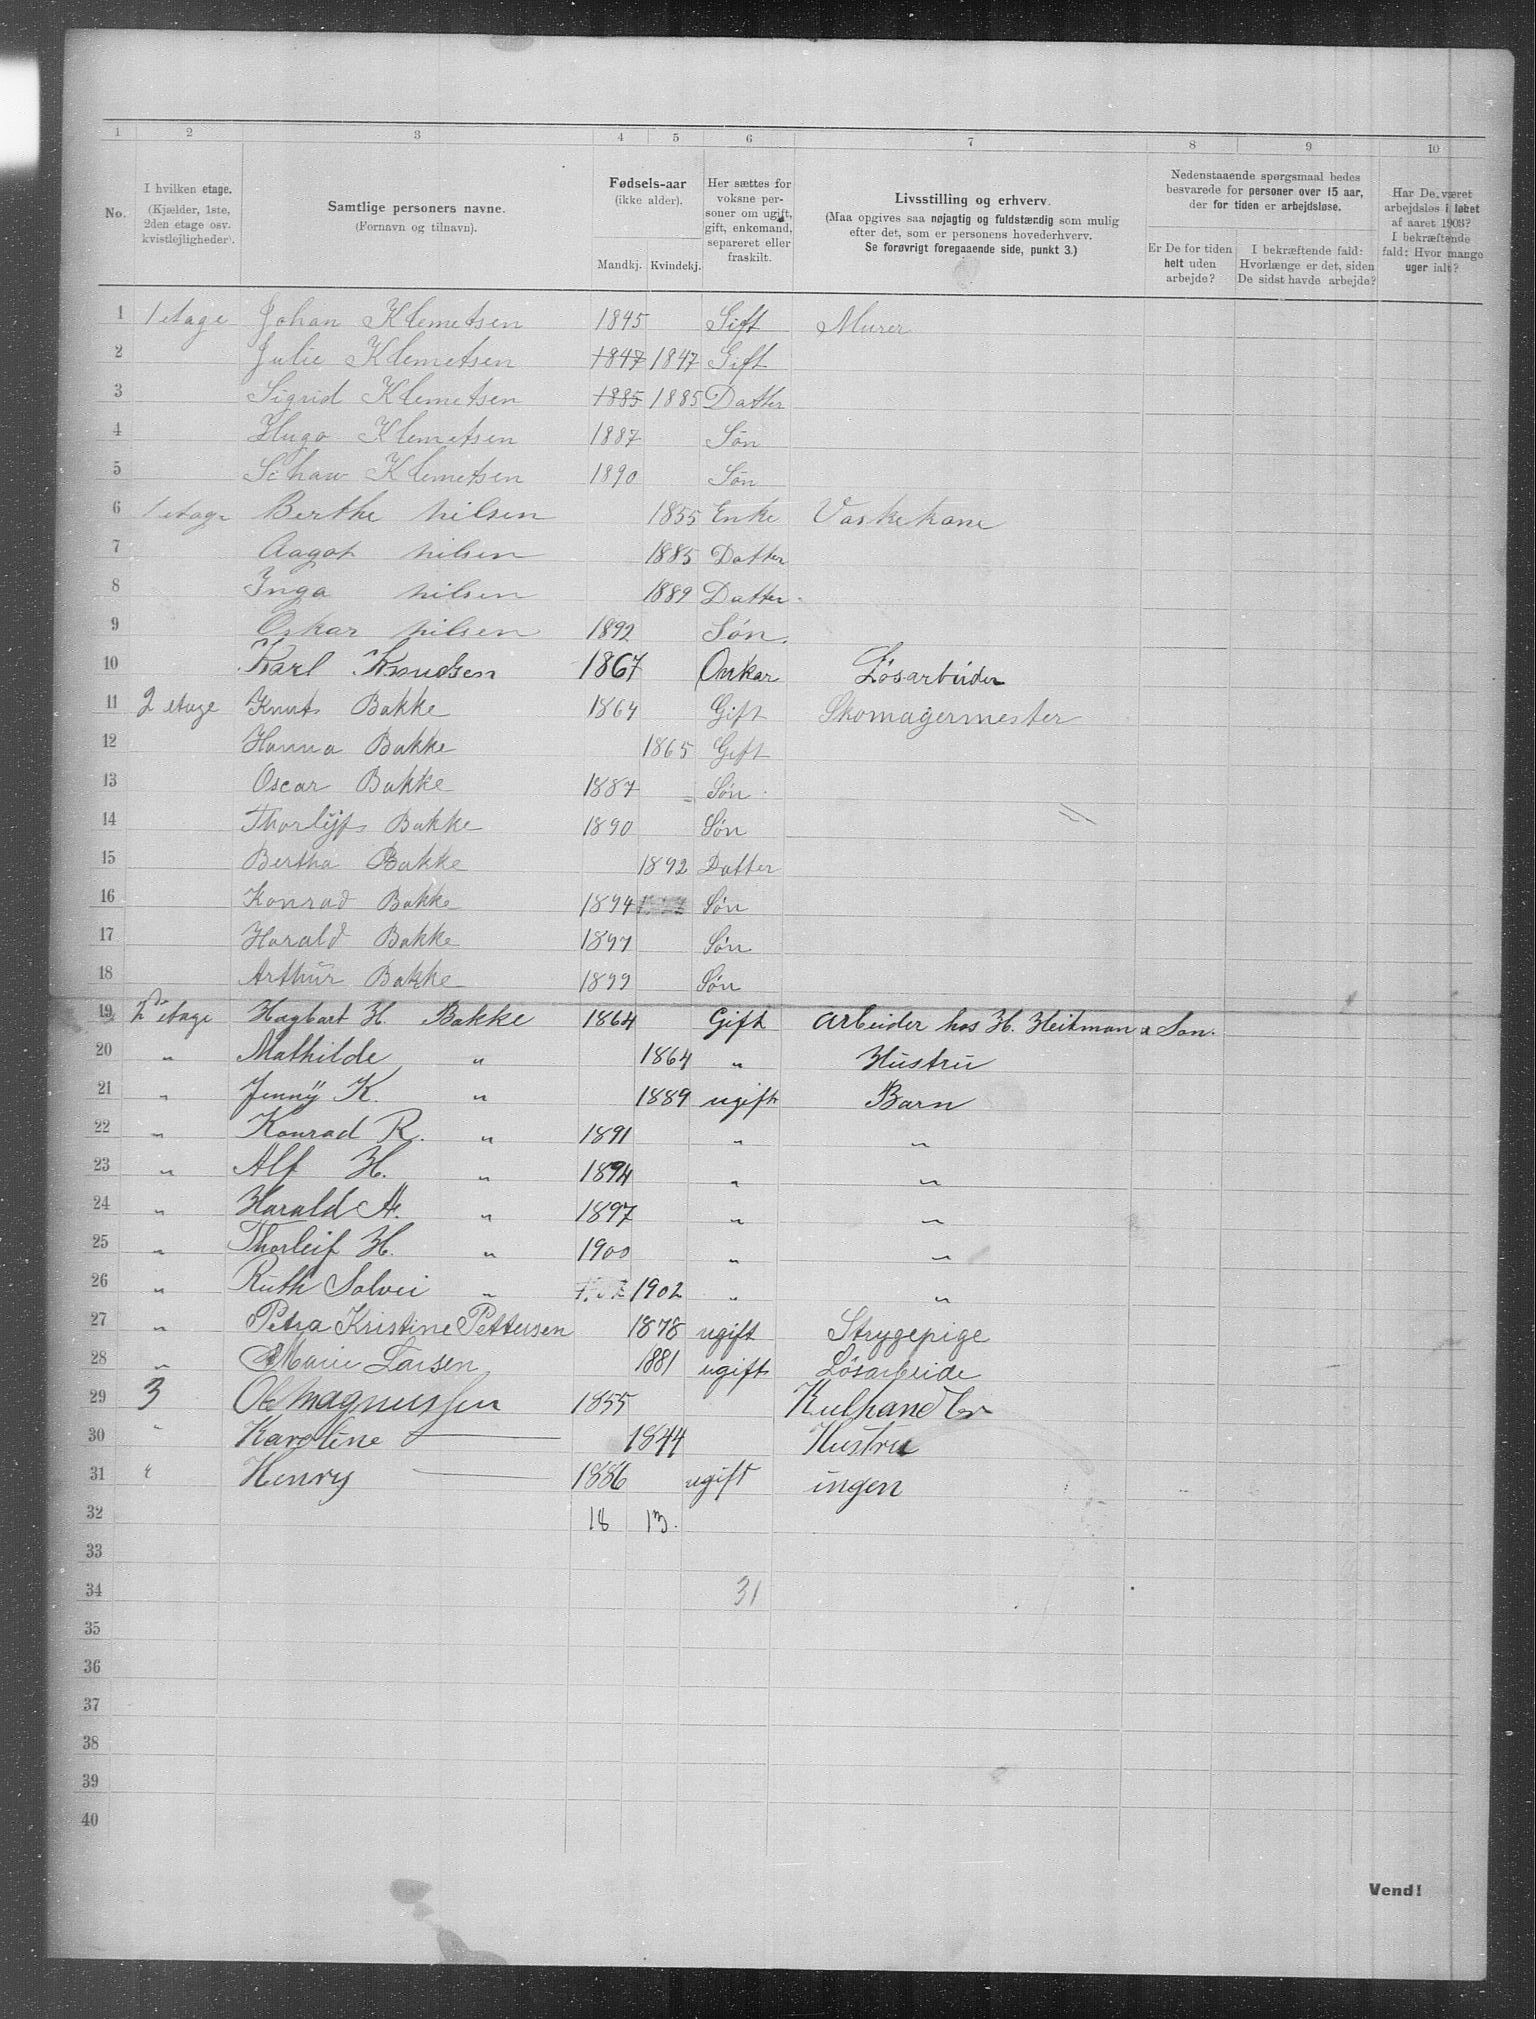 1 2 3 4 5 6 7 8 9 10
No. I hvilken etage. (Kjælder, 1ste, 2den etage osv. kvistlejligheder). Samtlige personers navne. (Fornavn og tilnavn). Fødsels-aar (ikke alder). Mandkj. Kvindekj. Her sættes for voksne personer om ugift, gift, enkemand, separeret eller fraskilt. Livsstilling og erhverv. (Maa opgives saa nøjagtig og fuldstændig som mulig efter det, som er personens hovederhverv. Se forøvrigt foregaaende side, punkt 3.) Nedenstaaende spørgsmaal bedes besvarede for personer over 15 aar, der for tiden er arbejdsløse. Er De for tiden helt uden arbejde? I bekræftende fald: Hvorlænge er det, siden De sidst havde arbejde? Har De været arbejdsløs i løbet af aaret 1903? I bekræftende fald: Hvor mange uger ialt?
1 1 etage Johan Klemetsen 1845 Gift Murer
2 Julie Klemetsen 1847 1847 Gift
3 Sigrid Klemetsen 1885 1885 Datter
4 Hugo Klemetsen 1887 Søn
5 Schaw Klemetsen 1890 Søn
6 1 etage Berthe Nilsen 1855 Enke Vaskekone
7 Aagot Nilsen 1885 Datter
8 Inga Nilsen 1889 Datter
9 Oskar Nilsen 1892 Søn.
10 Karl Knudsen 1867 Løsarbeider
11 2 etage Knut Bakke 1864 Gift Skomagermester
12 Hanna Bakke 1865 Gift
13 Oscar Bakke 1887 Søn
14 Bakke 1890 Søn
15 Bertha Bakke 1892 Datter
16 Konrad Bakke 1894 Søn
17 Harald Bakke 1897 Søn
18 Arthur Bakke 1899 Søn
19 2 etage Hagbart H. Bakke 1864 Gift Arbeider hos H. Heitman & Søn.
20 " Mathilde " 1864 " Hustru
21 " Jenny K. " 1889 ugift Barn
22 " Konrad R. " 1891 " "
23 " Alf H. " 1894 " "
24 " Harald A. " 1897 " "
25 " Thorleif H. " 1900 " "
26 " Ruth Solvei " 1902 " "
27 " Petra Kristine Pettersen 1878 ugift Strygepige
28 " Marie Larsen 1881 ugift Løsarbeide
29 3 Ole Magnussen 1855 Kulhandler
30 " Karoline — 1844 Hustru
31 " Henry — 1886 ugift ingen
32 18 13.
33
34 31
35
36
37
38
39
40
Vend!